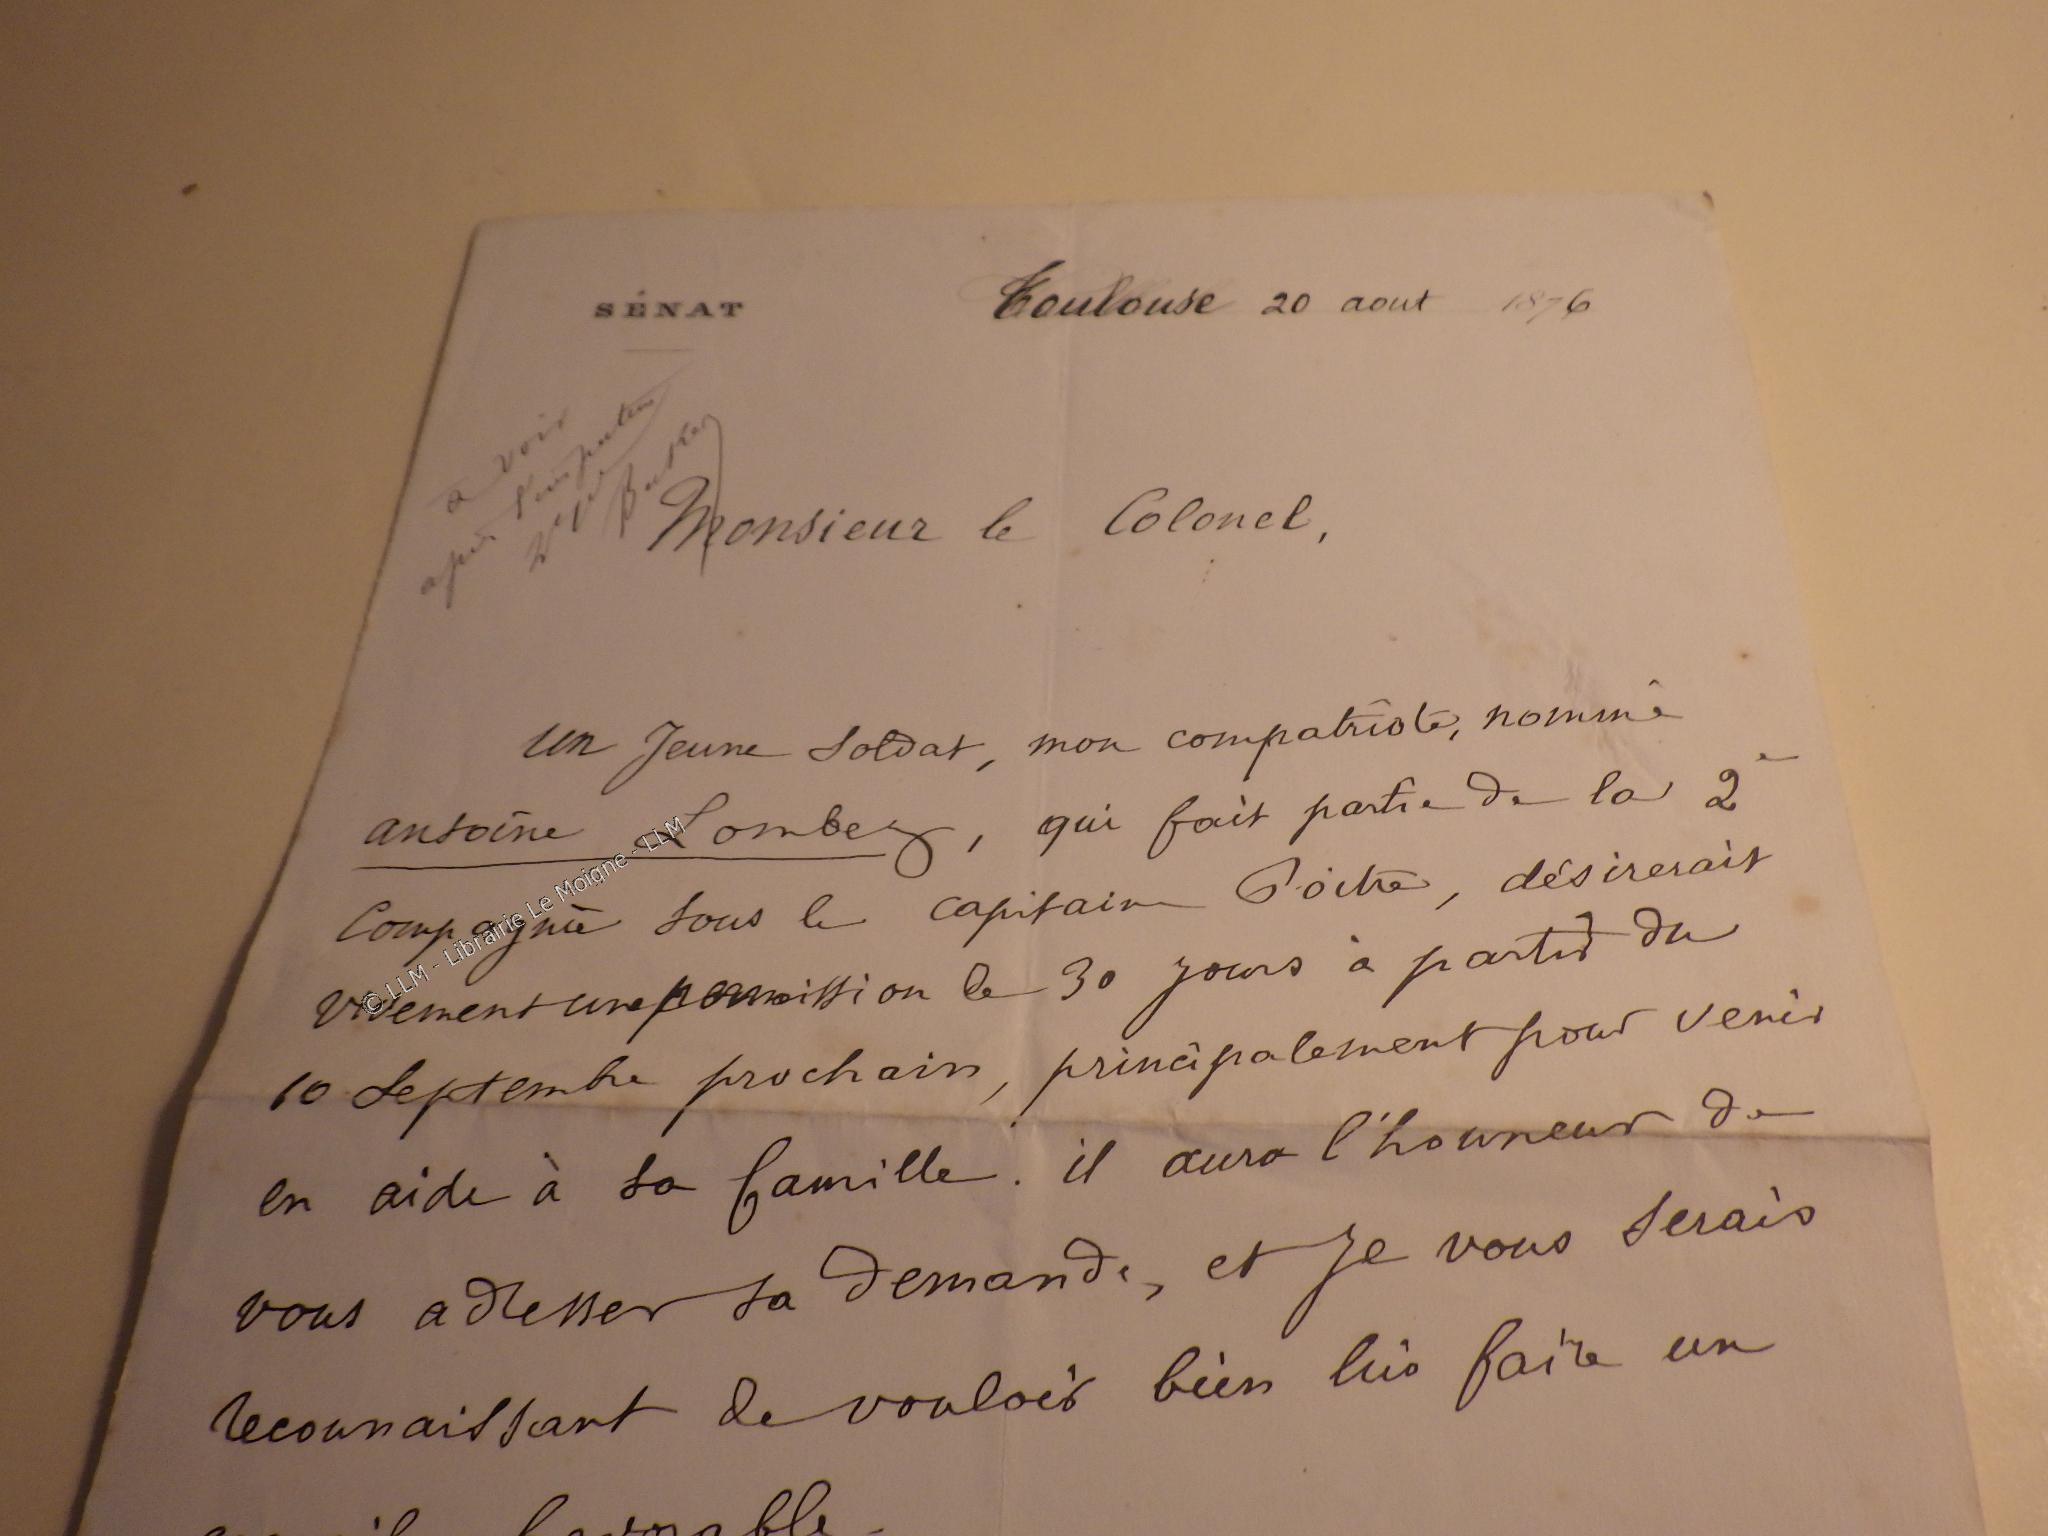 SÉNAT
Toulouse 20 aout 1876
à voir
après l'inspection
Monsieur le Colonel,
un jeune soldat, mon compatriote, nommé
antoine Lombez, qui fait partie de la 2e
Compagnie sous le capitaine Poitre, désirerait
vivement une permission de 30 jours à partir du
10 Septembre prochain, principalement pour venir
en aide à sa famille. il aura l'honneur de
vous adresser sa demande, et je vous serais
reconnaissant de vouloir bien lui faire un
accueil favorable.
© LLM - Librairie Le Moigne - LLM